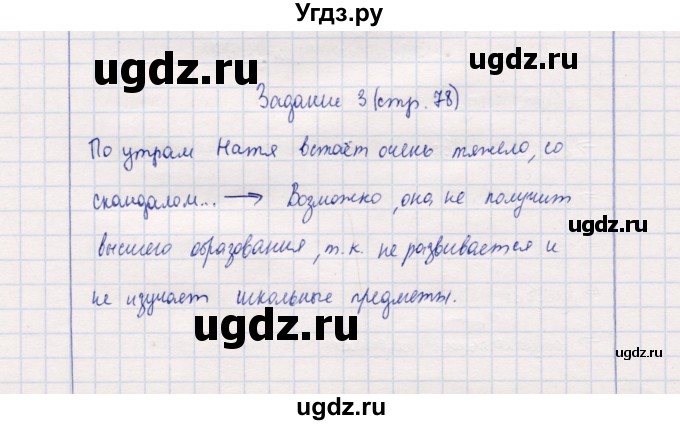 Угдз.ру
ugdz.ru
ugdz.ru
Задание 3 (стр. 78)
По утрам Натя встаёт очень тяжело, со
скандалом... → Возможно, она не получит
ugdz.ru
высшего образования, т.к. не развивается и
не изучает школьные предметы.
ugdz.ru
ugdz.ru
ugdz.ru